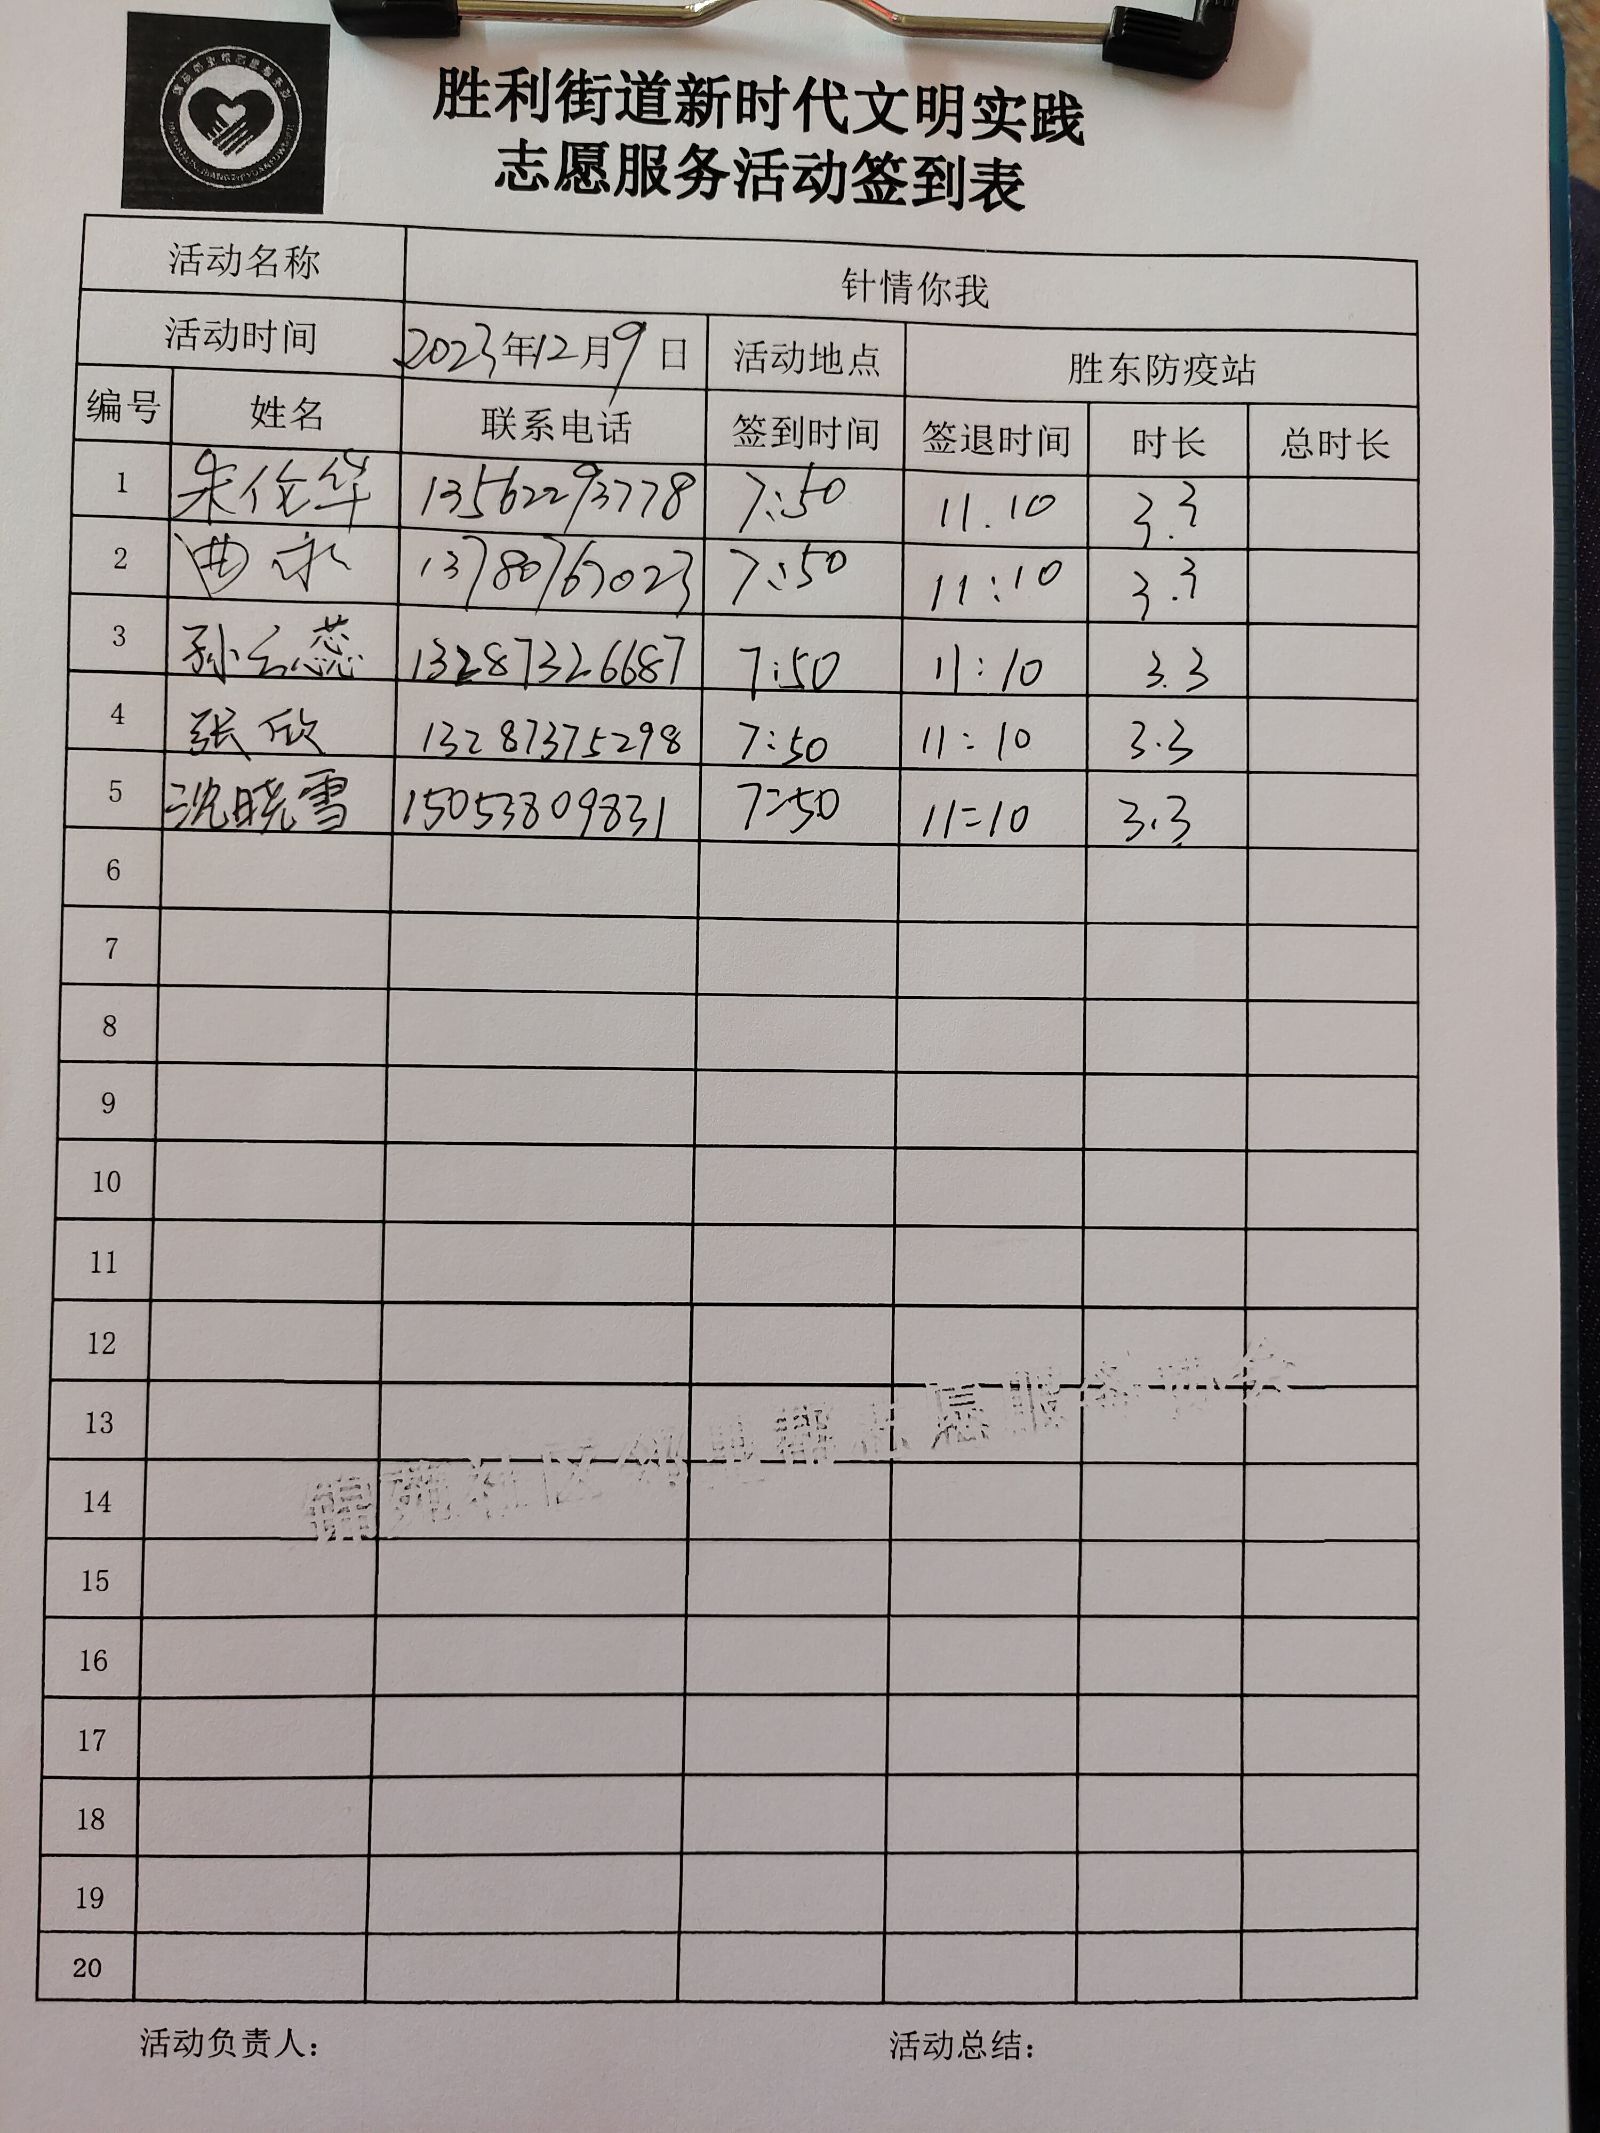 胜利街道新时代文明实践
志愿服务活动签到表
活动名称 针情你我
活动时间 2023年12月9日 活动地点 胜东防疫站
编号 姓名 联系电话 签到时间 签退时间 时长 总时长
1 朱伦华 13562293778 7:50 11.10 3.3
2 曲永 13780767023 7:50 11:10 3.3
3 孙云蕊 13287326687 7:50 11:10 3.3
4 张欣 13287375298 7:50 11:10 3.3
5 沈晓雪 15053809831 7:50 11:10 3.3
6
7
8
9
10
11
12
13
14
15
16
17
18
19
20
志愿服务协会
活动负责人： 活动总结：